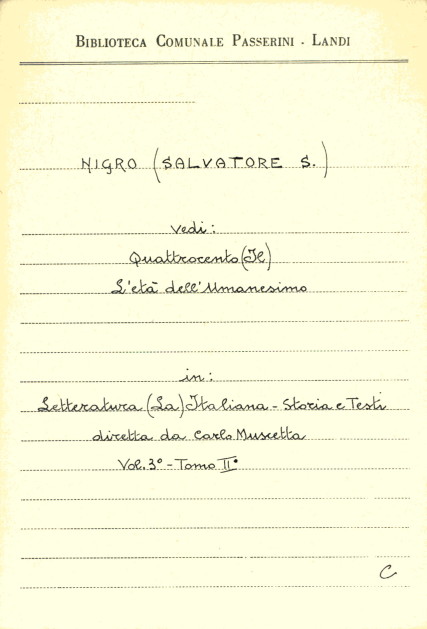 BIBLIOTECA COMUNALE PASSERINI - LANDI
NIGRO (SALVATORE S.)
vedi:
Quattrocento (Il)
L'età dell'Umanesimo
in:
Letteratura (La) Italiana - Storia e Testi
diretta da Carlo Muscetta
Vol. 3° - Tomo II°
C